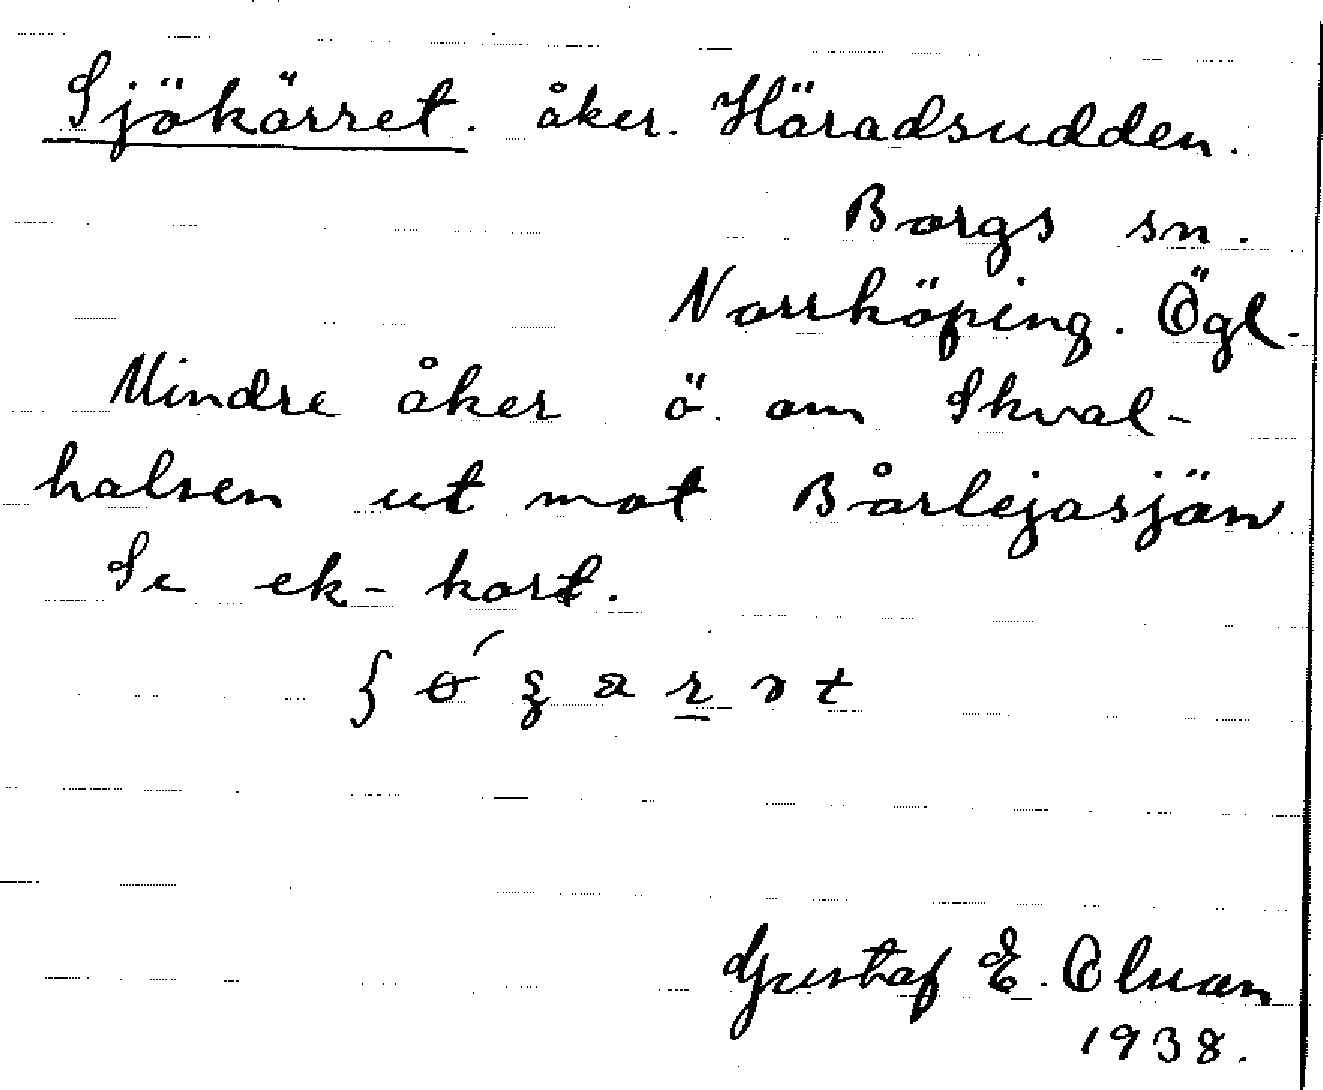 Sjökärret. åker. Häradsudden.
Borgs sn.
Norrköping. Ögl.
Mindre åker ö. om Skval-
halsen ut mot Bårlejasjön
Se ek-kart.
Gustaf E.
1938.